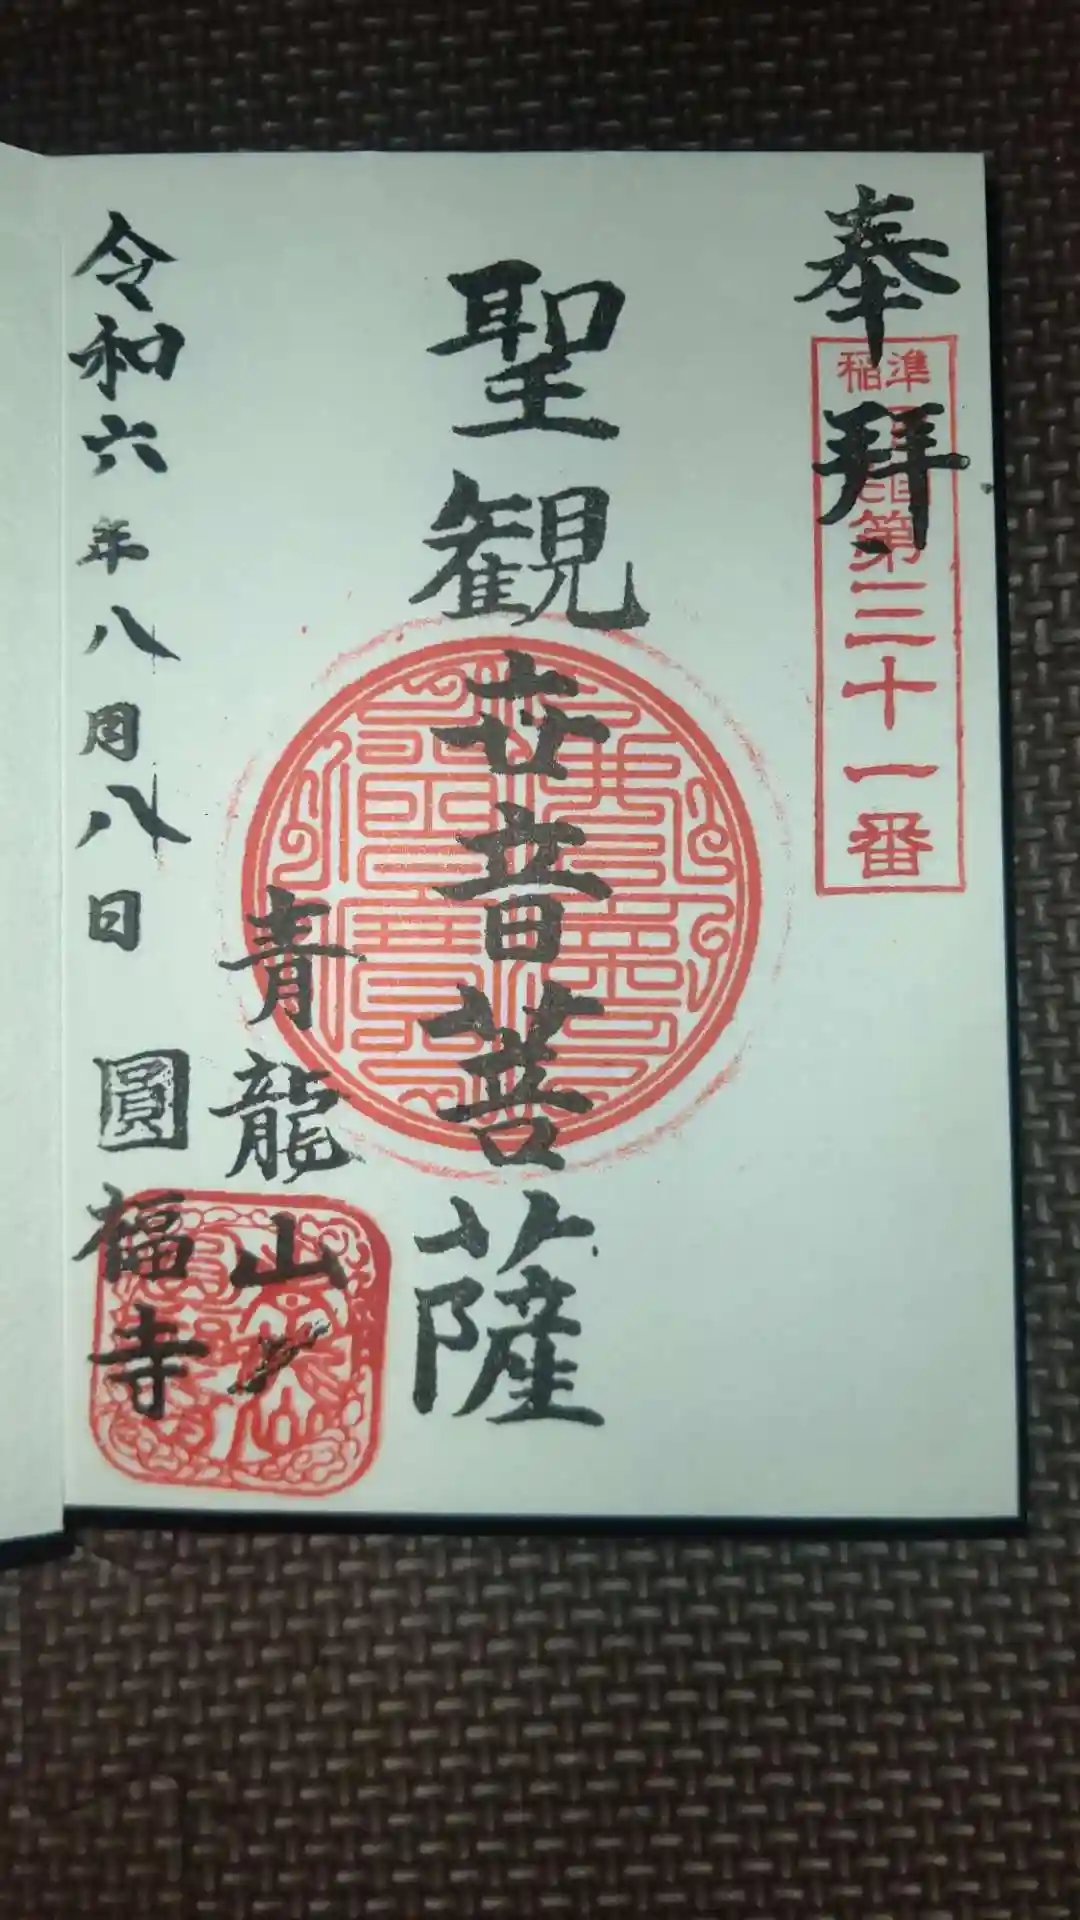 奉拝
準
稲
第三十一番
聖観世音菩薩
青龍山
令和六年八月八日 圓福寺